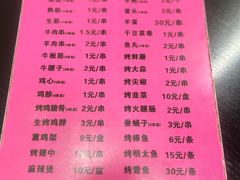 熟筋 1元/串
生筋 1元/串
牛肉串 1.5元/串
羊肉串 2元/串
牛板筋 1元/串
牛腰子 2元/串
鸡心 1元/串
鸡胗 1元/串
鸡脆骨 2元/串
生烤鸡脖 3元/串
熏鸡架 8元/份
烤翅中 10元/串
麻辣烫 10元/盆
3元/个
蛋头 3元/串
羊蛋 30元/串
干豆菜卷 1元/串
鱼丸 2元/串
烤鲜蘑 1元/串
烤大蒜 1元/串
烤尖椒 2元/串
烤韭菜 10元/盘
烤火腿肠 2元/串
蚕蛹子 3元/串
烤棒鱼 6元/条
烤明太鱼 15元/条
烤雪鱼 30元/条